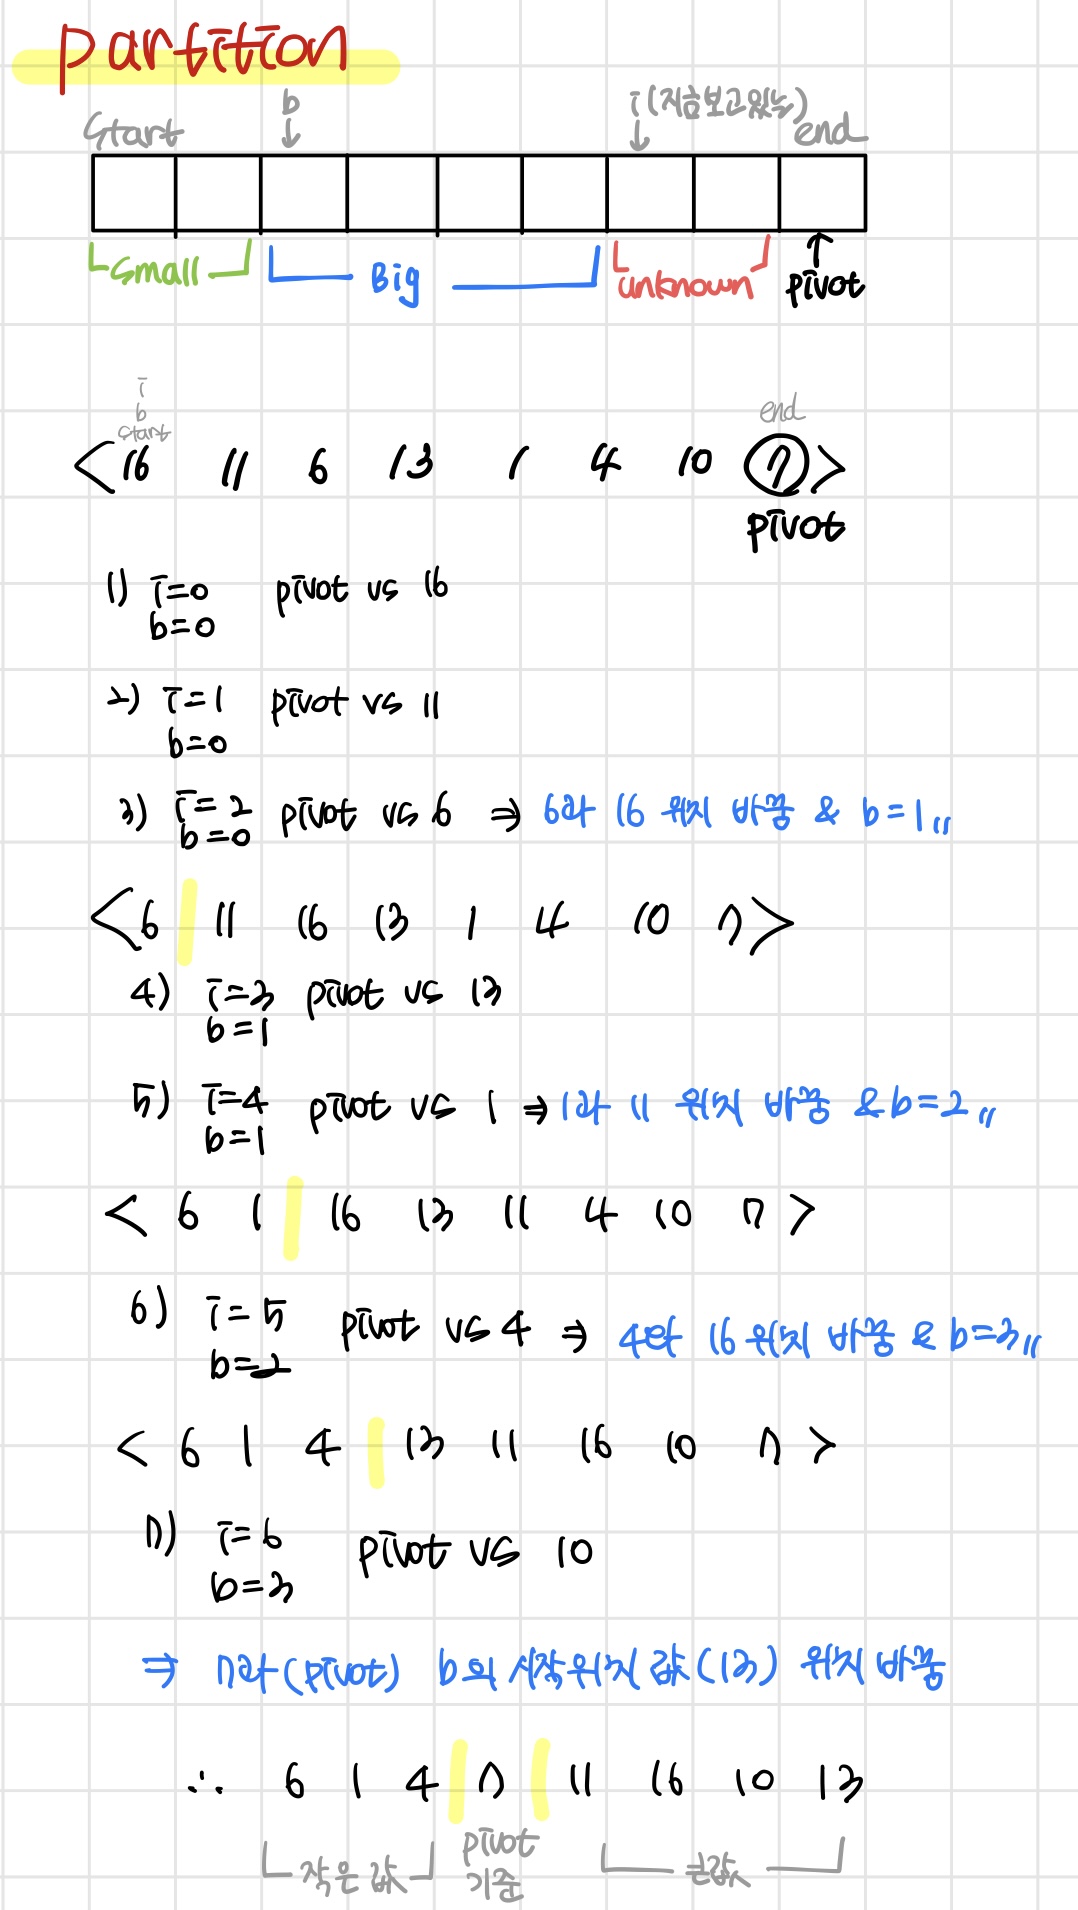 partition
start b i (지금보고있는) end
↓ ↓
small Big unknown pivot
i
b
start end
<16 11 6 13 1 4 10 7>
pivot
1) i=0 pivot vs 16
b=0
2) i=1 pivot vs 11
b=0
3) i=2 pivot vs 6 ⇒ 6과 16 위치 바꿈 & b=1〃
b=0
<6 11 16 13 1 4 10 7>
4) i=3 pivot vs 13
b=1
5) i=4 pivot vs 1 ⇒ 1과 11 위치 바꿈 & b=2〃
b=1
< 6 1 16 13 11 4 10 7 >
6) i=5 pivot vs 4 ⇒ 4와 16 위치 바꿈 & b=3〃
b=2
< 6 1 4 13 11 16 10 7 >
7) i=6 pivot vs 10
b=3
⇒ 7과(pivot) b의 시작위치 값(13) 위치 바꿈
∴ 6 1 4 7 11 16 10 13
작은 값 pivot 큰값
기준